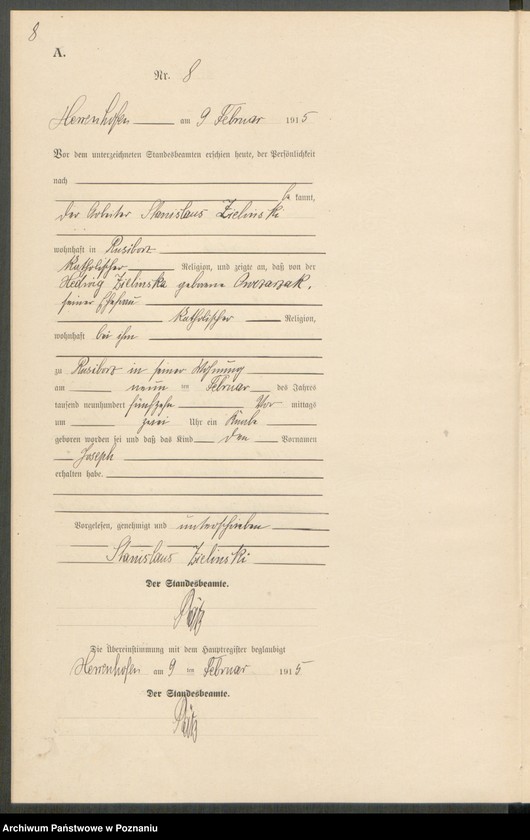 8
A.
Nr. 8
Herrenhofen am 9 Februar 1915
Vor dem unterzeichneten Standesbeamten erschien heute, der Persönlichkeit
nach
be kannt,
der Arbeiter Stanislaus Zielinski
wohnhaft in Rusiborz
katholischer Religion, und zeigte an, daß von der
Hedwig Zielinska geborene
seiner Ehefrau
katholischer Religion,
wohnhaft bei ihm
zu Rusiborz in seiner Wohnung
am neun ten Februar des Jahres
tausend neunhundert fünfzehn Vor mittags
um zwei Uhr ein Knabe
geboren worden sei und daß das Kind den Vornamen
Joseph
erhalten habe.
Vorgelesen, genehmigt und unterschrieben
Stanislaus Zielinski
Der Standesbeamte.
Die Übereinstimmung mit dem Hauptregister beglaubigt
Herrenhofen am 9 ten Februar 1915
Der Standesbeamte.
Archiwum Państwowe w Poznaniu